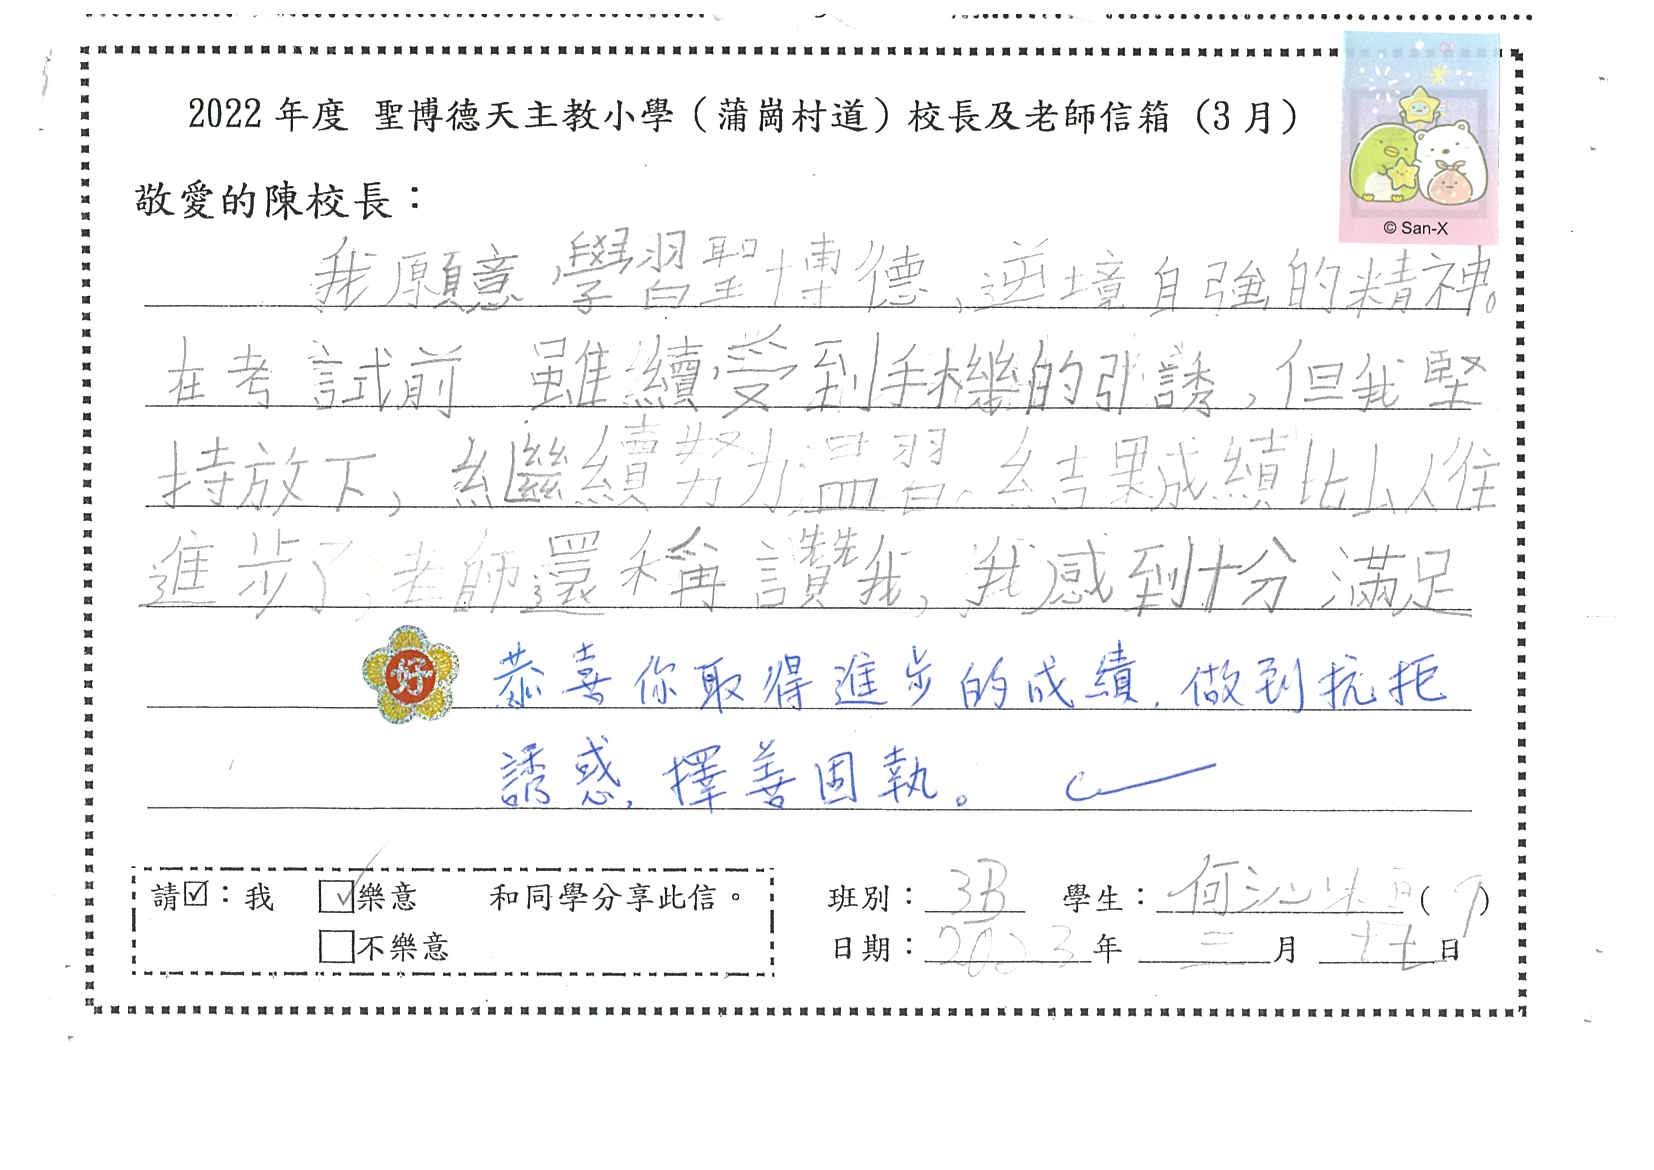 2022 年度 聖博德天主教小學（蒲崗村道）校長及老師信箱（3 月）
© San-X
敬愛的陳校長：
我願意學習聖博德，逆境自強的精神。
在考試前 雖續受到手機的引誘，但我堅
持放下，繼續努力溫習。結果成績比以往
進步了，老師還稱讚我，我感到十分滿足
好
恭喜你取得進步的成績，做到抗拒
誘惑，擇善固執。
請☑：我 ☑樂意 和同學分享此信。
☐不樂意
班別：3B 學生：何沁 ( 9 )
日期：2023 年 三 月 十七 日